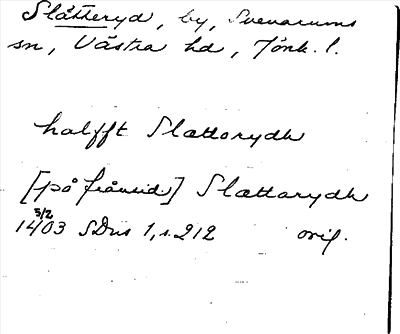 Slätteryd, by, Svenarums
sn, Västra hd, Jönk. l.
halfft Slættorydh
[på frånsid] Slættarydh
5/2
1403 SDns 1, s. 212 orig.